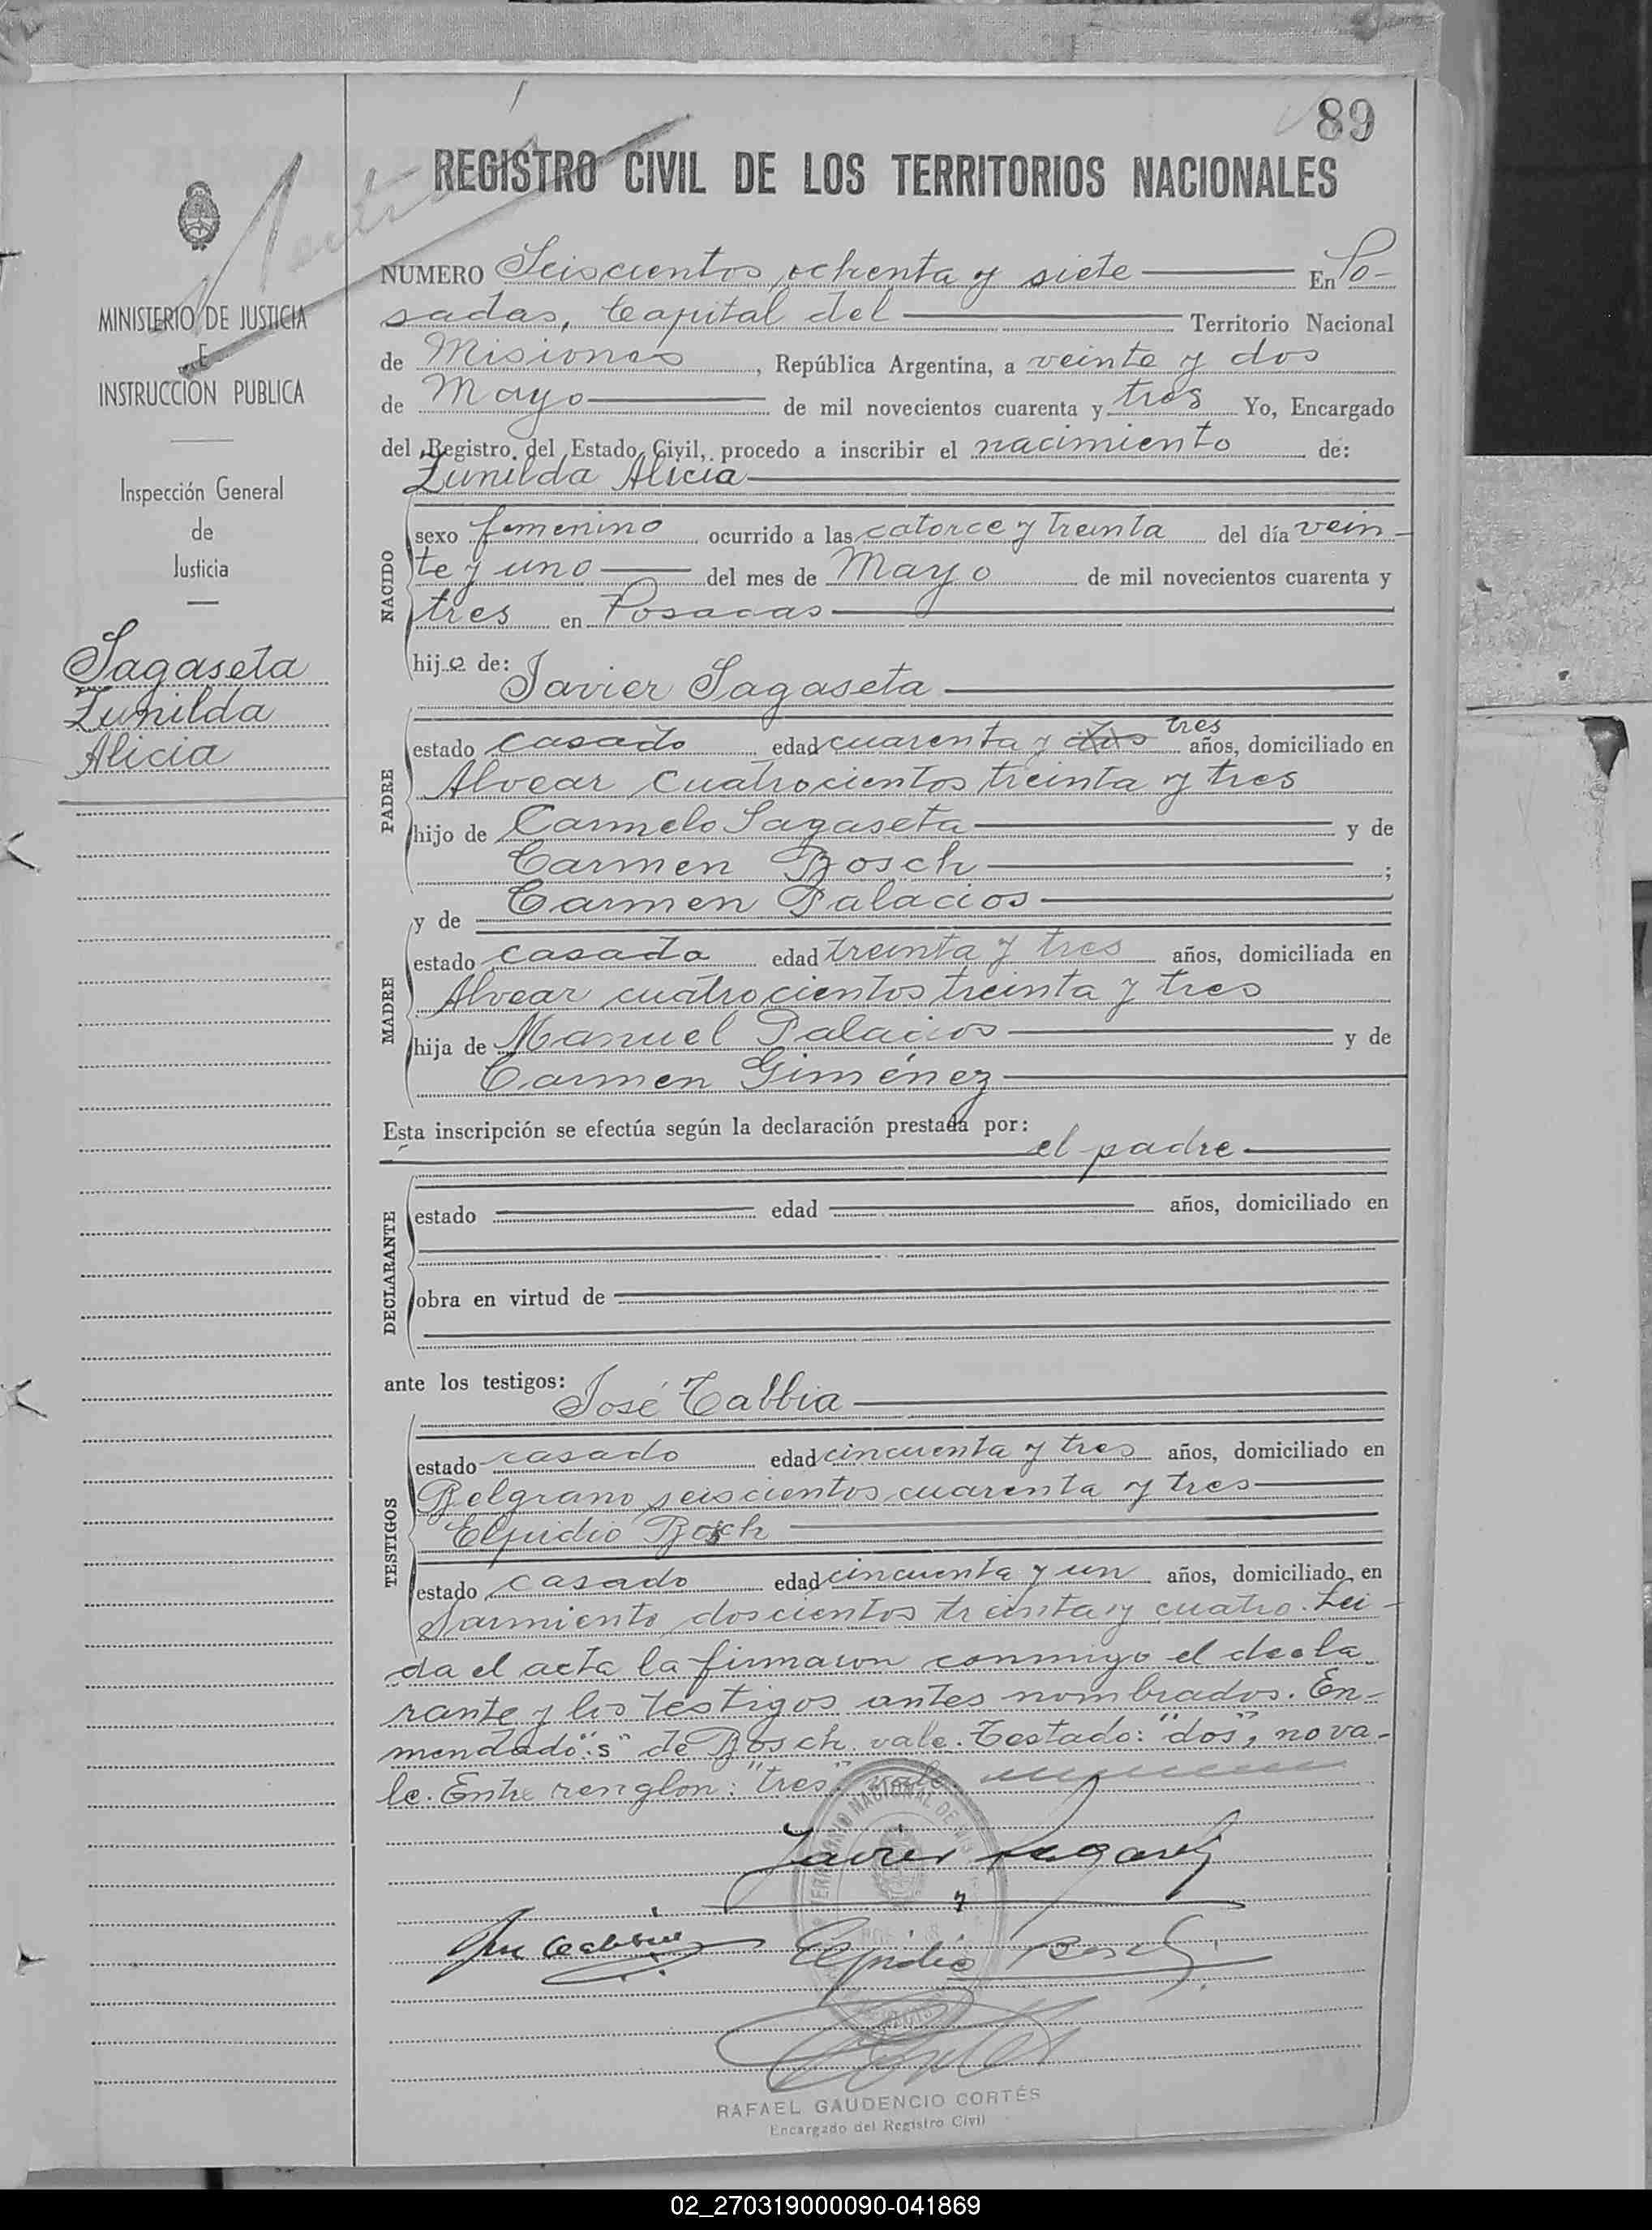 89
REGISTRO CIVIL DE LOS TERRITORIOS NACIONALES
MINISTERIO DE JUSTICIA
E
INSTRUCCIÓN PUBLICA
Inspección General
de
Justicia
Sagaseta
Zunilda
Alicia
NUMERO Seiscientos ochenta y siete En Po-
sadas, Capital del Territorio Nacional
de Misiones, República Argentina, a veinte y dos
de Mayo de mil novecientos cuarenta y tres Yo, Encargado
del Registro del Estado Civil, procedo a inscribir el nacimiento de:
Zunilda Alicia
NACIDO
sexo femenino ocurrido a las catorce y treinta del día vein-
te y uno del mes de Mayo de mil novecientos cuarenta y
tres en Posadas
hija de:
Javier Sagaseta
PADRE
tres
estado casado edad cuarenta y dos años, domiciliado en
Alvear cuatrocientos treinta y tres
hijo de Carmelo Sagaseta y de
Carmen Bosch ;
y de Carmen Palacios
MADRE
estado casada edad treinta y tres años, domiciliada en
Alvear cuatrocientos treinta y tres
hija de Manuel Palacios y de
Carmen Giménez
Esta inscripción se efectúa según la declaración prestada por:
el padre
DECLARANTE
estado edad años, domiciliado en
obra en virtud de
ante los testigos:
José Cabbia
TESTIGOS
estado casado edad cincuenta y tres años, domiciliado en
Belgrano seiscientos cuarenta y tres
Elpidio Bosch
estado casado edad cincuenta y un años, domiciliado en
Sarmiento doscientos treinta y cuatro. Lei-
da el acta la firmaron conmigo el decla-
rante y los testigos antes nombrados. En-
mendado: "s" de Bosch vale. Testado: "dos", no va-
le. Entre renglon: "tres" vale.
TERRITORIO NACIONAL DE
Javier Sagaseta
José Cabbia Elpidio Bosch
RAFAEL GAUDENCIO CORTÉS
Encargado del Registro Civil
02_270319000090-041869